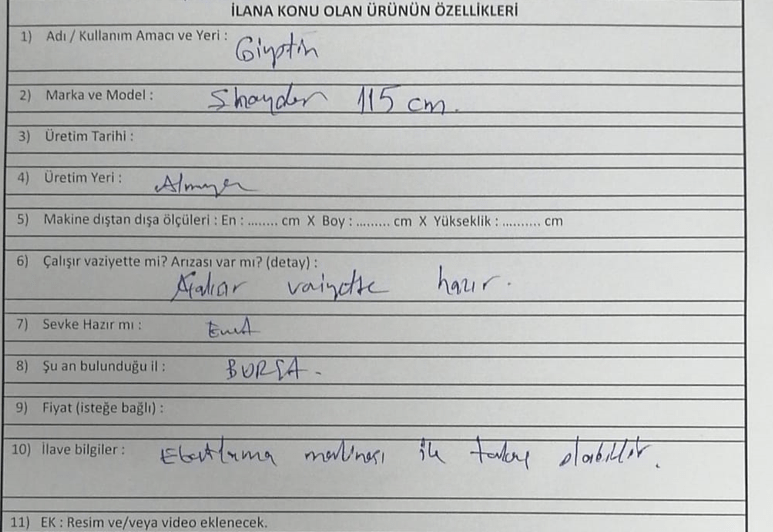 İLANA KONU OLAN ÜRÜNÜN ÖZELLİKLERİ
1) Adı / Kullanım Amacı ve Yeri : Giyotin
2) Marka ve Model : Shayder 115 cm.
3) Üretim Tarihi :
4) Üretim Yeri : Almanya
5) Makine dıştan dışa ölçüleri : En : ........ cm X Boy : ......... cm X Yükseklik : .......... cm
6) Çalışır vaziyette mi? Arızası var mı? (detay) :
hazır.
7) Sevke Hazır mı : Evet
8) Şu an bulunduğu il : BURSA.
9) Fiyat (isteğe bağlı) :
10) İlave bilgiler : Ebatlama makinesi ile takas olabilir.
11) EK : Resim ve/veya video eklenecek.